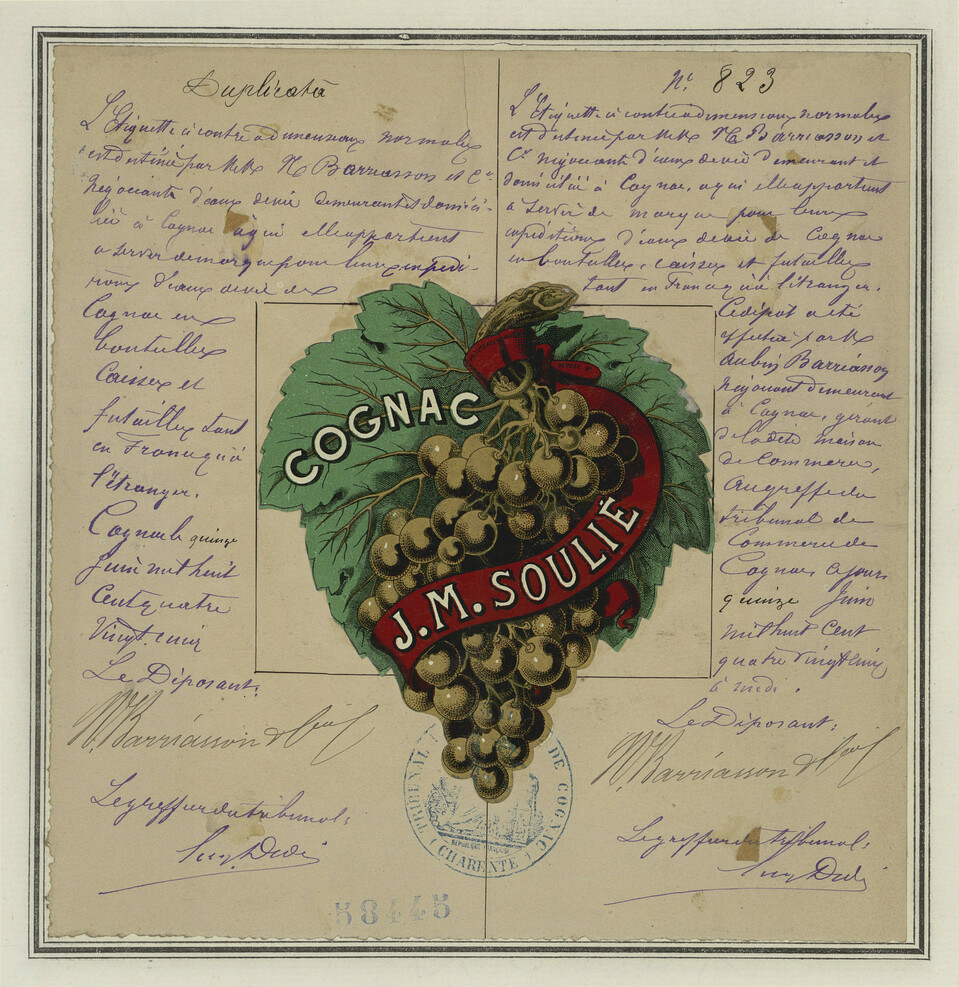 Duplicata
L'Etiquette ci contre a dimensions normales
est destinée par MM. N. Barriasson et Cie
Négociants d'eaux de vie demeurant et domici-
liés à Cognac à qui elle appartient
a servir de marque pour leurs expédi-
tions d'eaux de vie de
Cognac en
bouteilles
Caisses et
futailles tant
en France qu'à
l'étranger.
Cognac le quinze
Juin mil huit
Cent quatre
Vingt cinq
Le Déposant:
N. Barriasson &
Le greffier du tribunal:
No. 823
L'Etiquette ci contre a dimensions normales
est destinée par MM. N. Barriasson et
Cie Négociants d'eaux de vie demeurant et
domiciliés à Cognac, a qui elle appartient
a servir de marque pour leurs
expéditions d'eaux de vie de Cognac
en bouteilles, caisses et futailles
tant en France qu'à l'étranger.
Ce dépôt a été
effectué par M
Aubin Barriasson
Négociant demeurant
à Cognac, gérant
de la dite maison
de Commerce,
Au greffe du
tribunal de
Commerce de
Cognac ce jour
quinze Juin
mil huit Cent
quatre vingt cinq
à midi.
Le Déposant:
N. Barriasson &
Le greffier du tribunal:
COGNAC
J. M. SOULIÉ
TRIBUNAL DE COGNAC
(CHARENTE)
58445